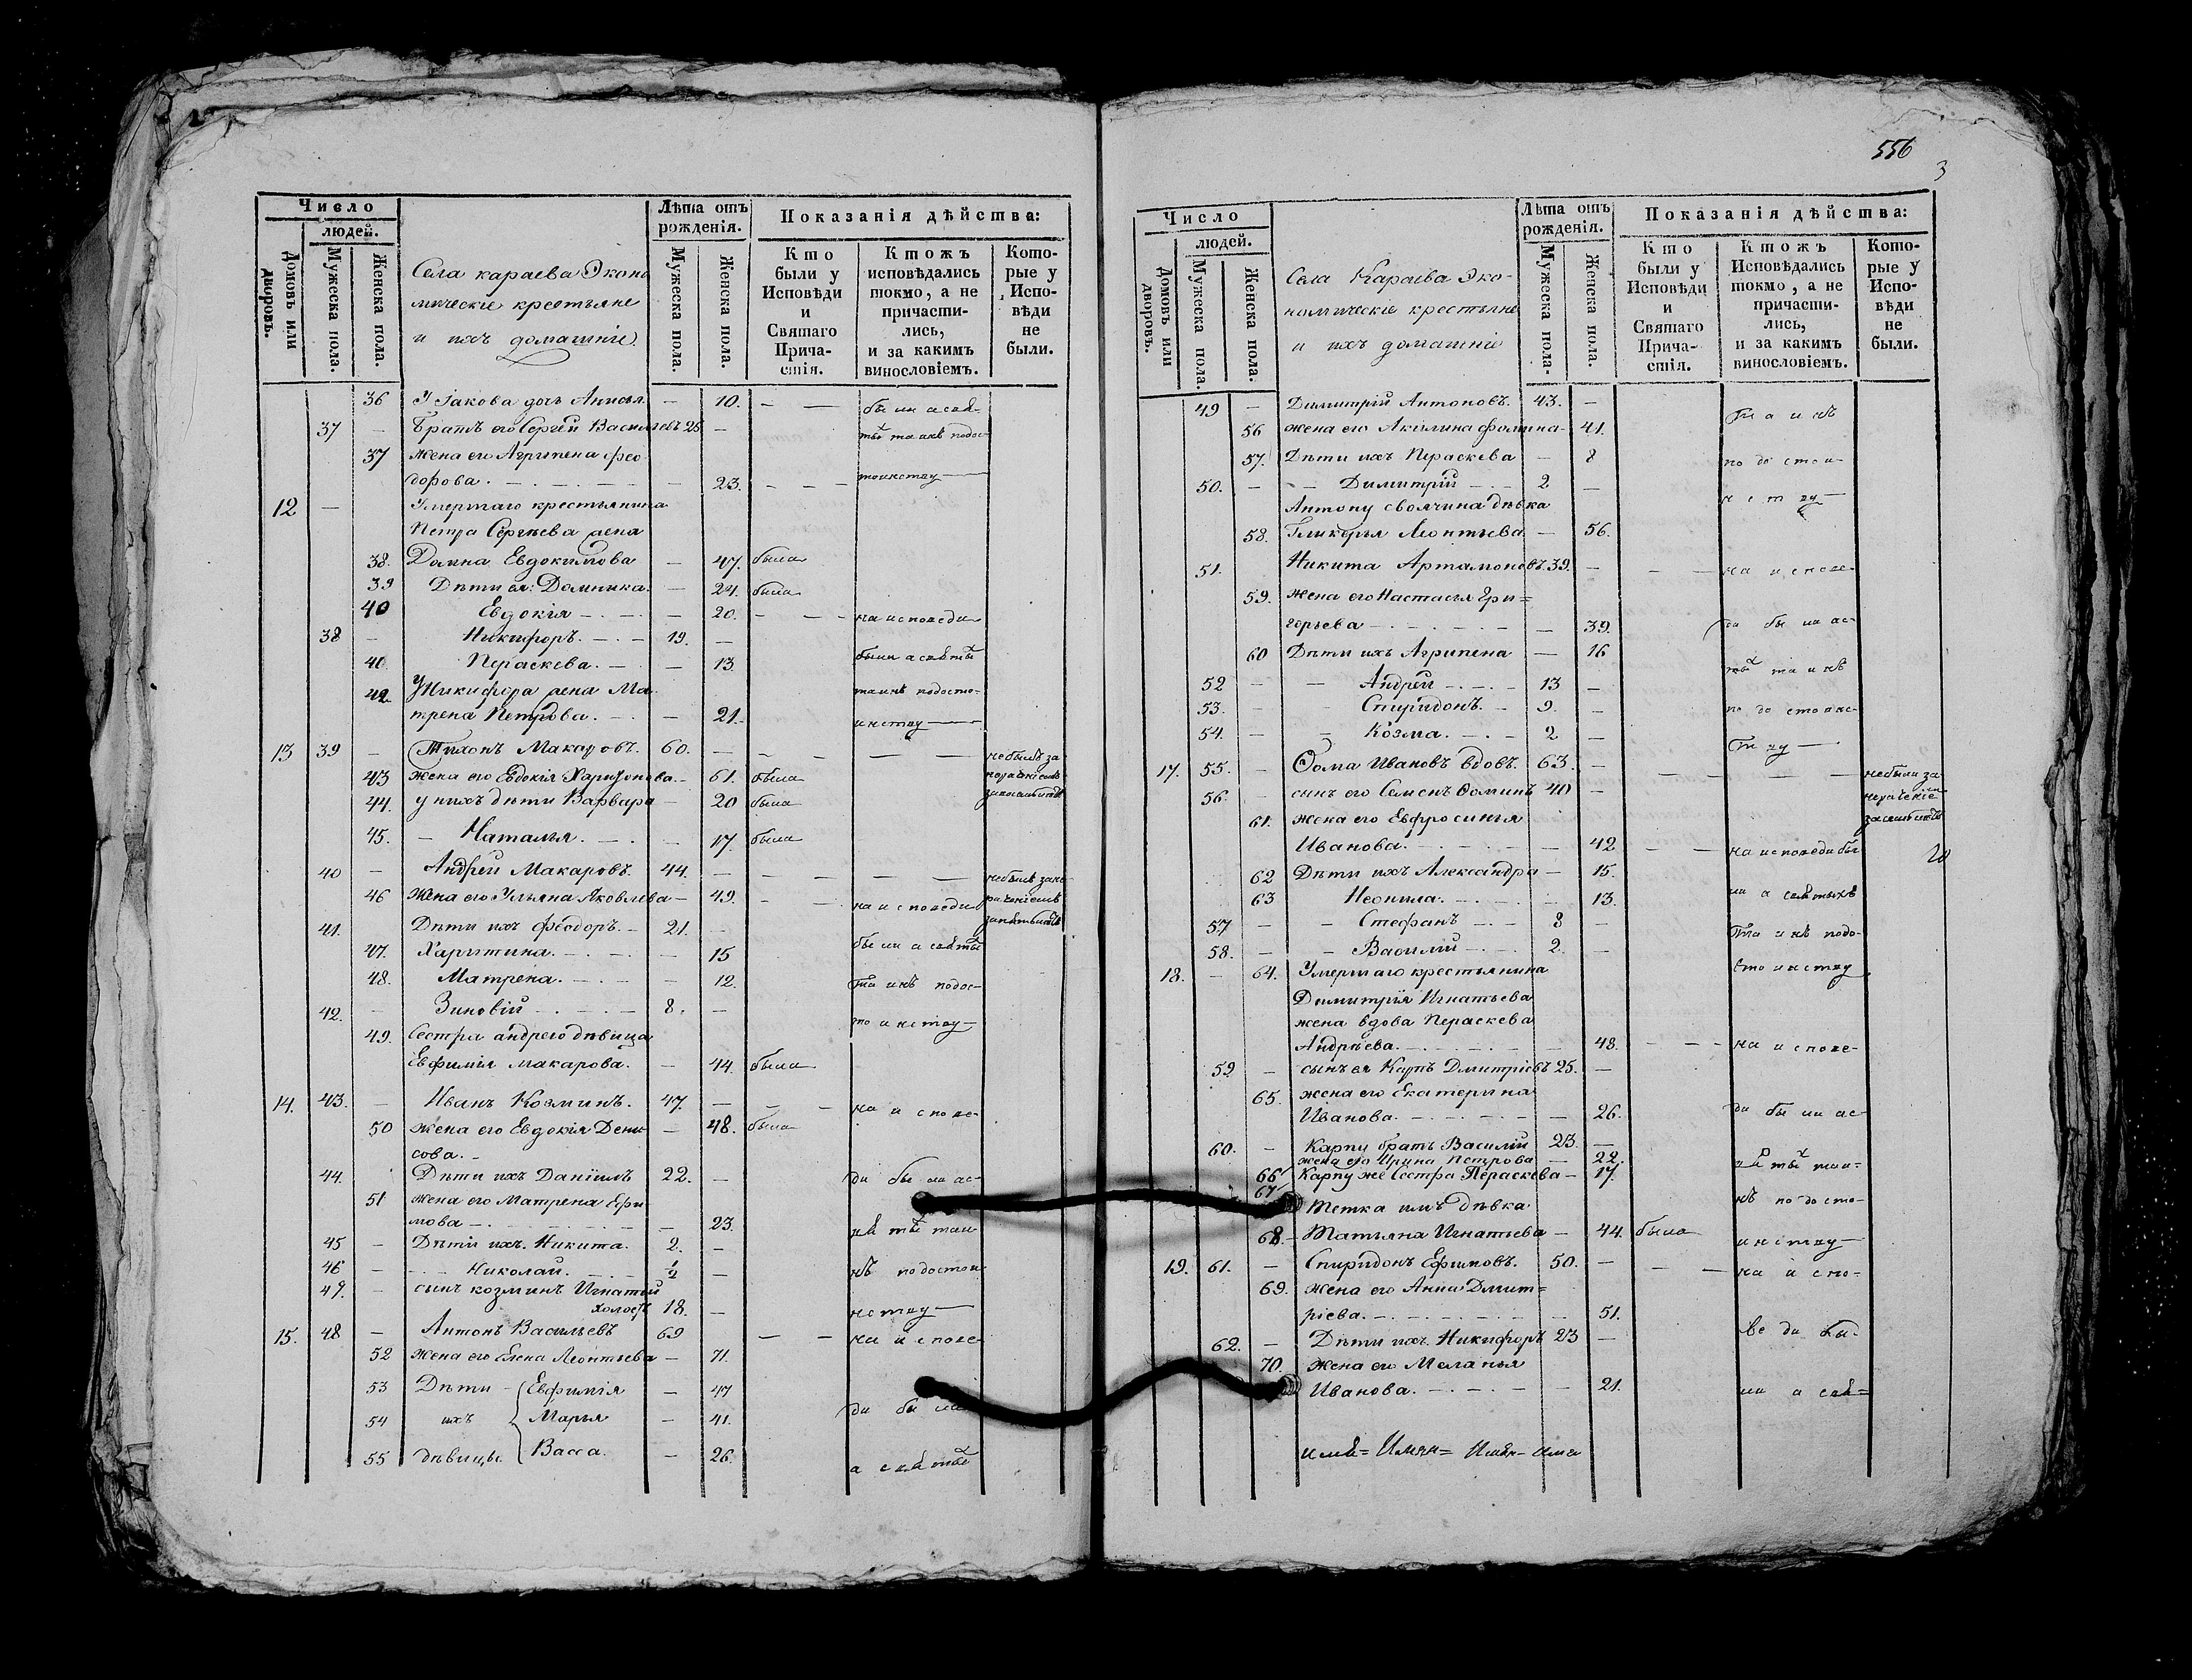 Число
людей.
Домовъ или дворовъ.
Мужеска пола.
Женска пола.
Села караева Эконо
мическіе крестьяне
и ихъ домашніе.
Лѣта отъ рожденія.
Мужеска пола.
Женска пола.
Показанія дѣйства:
Кто были у Исповѣди и Святаго Причастія.
Ктожъ исповѣдались токмо, а не причастились, и за какимъ винословіемъ.
Которые у Исповѣди не были.
36 У Іакова дочь Анисья — 10. — — бы ли а свя-
37 — Братъ его Сергей Васильевъ 25 — тыхъ таинъ подос-
37 жена его Агрипена Фео
дорова. — 23. — — — тоинству
12 — Умершаго крестьянина
Петра Сергѣева жена
38. Домна Евдокимова — 47. была
39 Дѣти ея: Домника. — 24. была
40 Евдокія — 20. — — на исповеди
38 — Никифоръ. — 19. —
40 Пераскева. — 13 были а святыхъ
42 У Никифора жена Ма- таинъ подосто-
трена Петрова. — 21. инству
13 39 — Тихонъ Макаровъ. 60. — — — — не былъ за
43 жена его Евдокія Харитонова. — 61. была
44. у нихъ дѣти Варвара — 20 была
45. — Наталья. — 17. была
40 — Андрей Макаровъ. 44. — — — —
46 жена его Ульяна Яковлева — 49. — — на исповеди
41. Дѣти ихъ Феодоръ. — 21. —
47. Харитина. — 15 бы ли а святыхъ
48. Матрена. — 12. Та инъ подос-
42. — Зиновій — 8. — то инству
49. Сестра андрею дѣвица
Евфимія Макарова. — 44. была
14. 43. — Иванъ Козминъ. 47. — — — на и спове-
50 жена его Евдокія Дени — 48. была
сова. —
44. Дѣти ихъ Даніилъ 22. — ди бы ли ас-
51 жена его Матрена Ефи
мова — 23. вя тыхъ таи
45 — Дѣти ихъ. Никита. 2. —
46 — — Николай. ½ — нъ подостои
47. — сынъ козминъ Игнатій
холостъ 18. — нству
15. 48 — Антонъ Васильевъ 69 — — на и спове-
52 жена его Елена Леонтьева — 71.
53 Дѣти — Евфимія — 47
54 ихъ Марья — 41. ди бы ли
55 дѣвицы. Васса. — 26. а святыхъ
556
3
Число
людей.
Домовъ или дворовъ.
Мужеска пола.
Женска пола.
Села Караева Эко-
номическіе крестьяне
и ихъ домашніе
Лѣта отъ рожденія.
Мужеска пола.
Женска пола.
Показанія дѣйства:
Кто были у Исповѣди и Святаго Причастія.
Ктожъ Исповѣдались токмо, а не причастились, и за какимъ винословіемъ.
Которые у Исповѣди не были.
49 — Димитрій Антоновъ. 43. — Та и нъ
56 жена его Акилина Фомина — 41.
57. Дѣти ихъ Пераскева — 8 по до стои-
50. — — Димитрій — 2 — н ст ву
Антону своячина дѣвка
58. Гликерья Леонтьева — 56.
51. Никита Артамоновъ. 39. — — — на и спове-
59. жена его Настасья Гри=
горьева — 39. ди бы ли ас-
60 Дѣти ихъ Агрипена — 16
52 — — Андрей — 13 — тыхъ та инъ
53. — — Спиридонъ. — 9. — по до стоинс-
54. — — Козма. — 2 — Тву
17. 55. — Фома Ивановъ вдовъ. 63. — — — — не были за
56. — сынъ его Семенъ Фоминъ 40 — нераченіе
61. жена его Евфросинья
Иванова. — 42 — — на исповеди бы
20
62 Дѣти ихъ Александра — 15.
63 Неонила. — 13. ли а святыхъ
57 — — Стефанъ — 8 — Та и нъ подо-
58. — — Василій — 2. —
18. — 64. Умершаго крестьянина стоинству
Димитрія Игнатьева
жена вдова Пераскева
Андрѣева. — 48. — — — на и спове-
59 — сынъ ея Карпъ Дмитріевъ 25. —
65. жена его Екатерина
Иванова. — 26. ди бы ли ас-
60. — Карпу братъ Василій 23. —
жена его Ирина Петрова — 22. вя тыхъ таи-
66 Карпу же Сестра Пераскева — 17.
67 нъ по до сто-
Тетка имъ дѣвка
68. — Татьяна Игнатьева — 44. была инству
19. 61. — Спиридонъ Ефимовъ. 50. — — — на и спо-
69. жена его Анна Дмит=
ріева. — 51.
62. — Дѣти ихъ. Никифоръ 23 — ве ди бы-
70. жена его Меланья
Иванова. — 21. ли а свя=